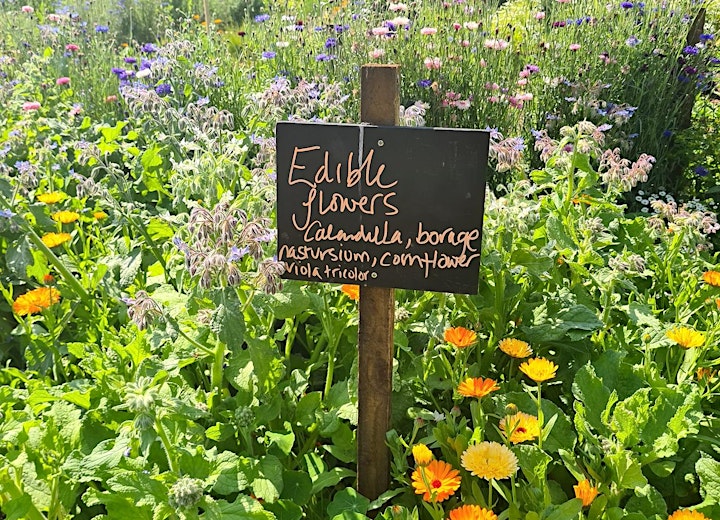 Edible
flowers
Calandulla, borage
nastursium, cornflower
viola tricolor